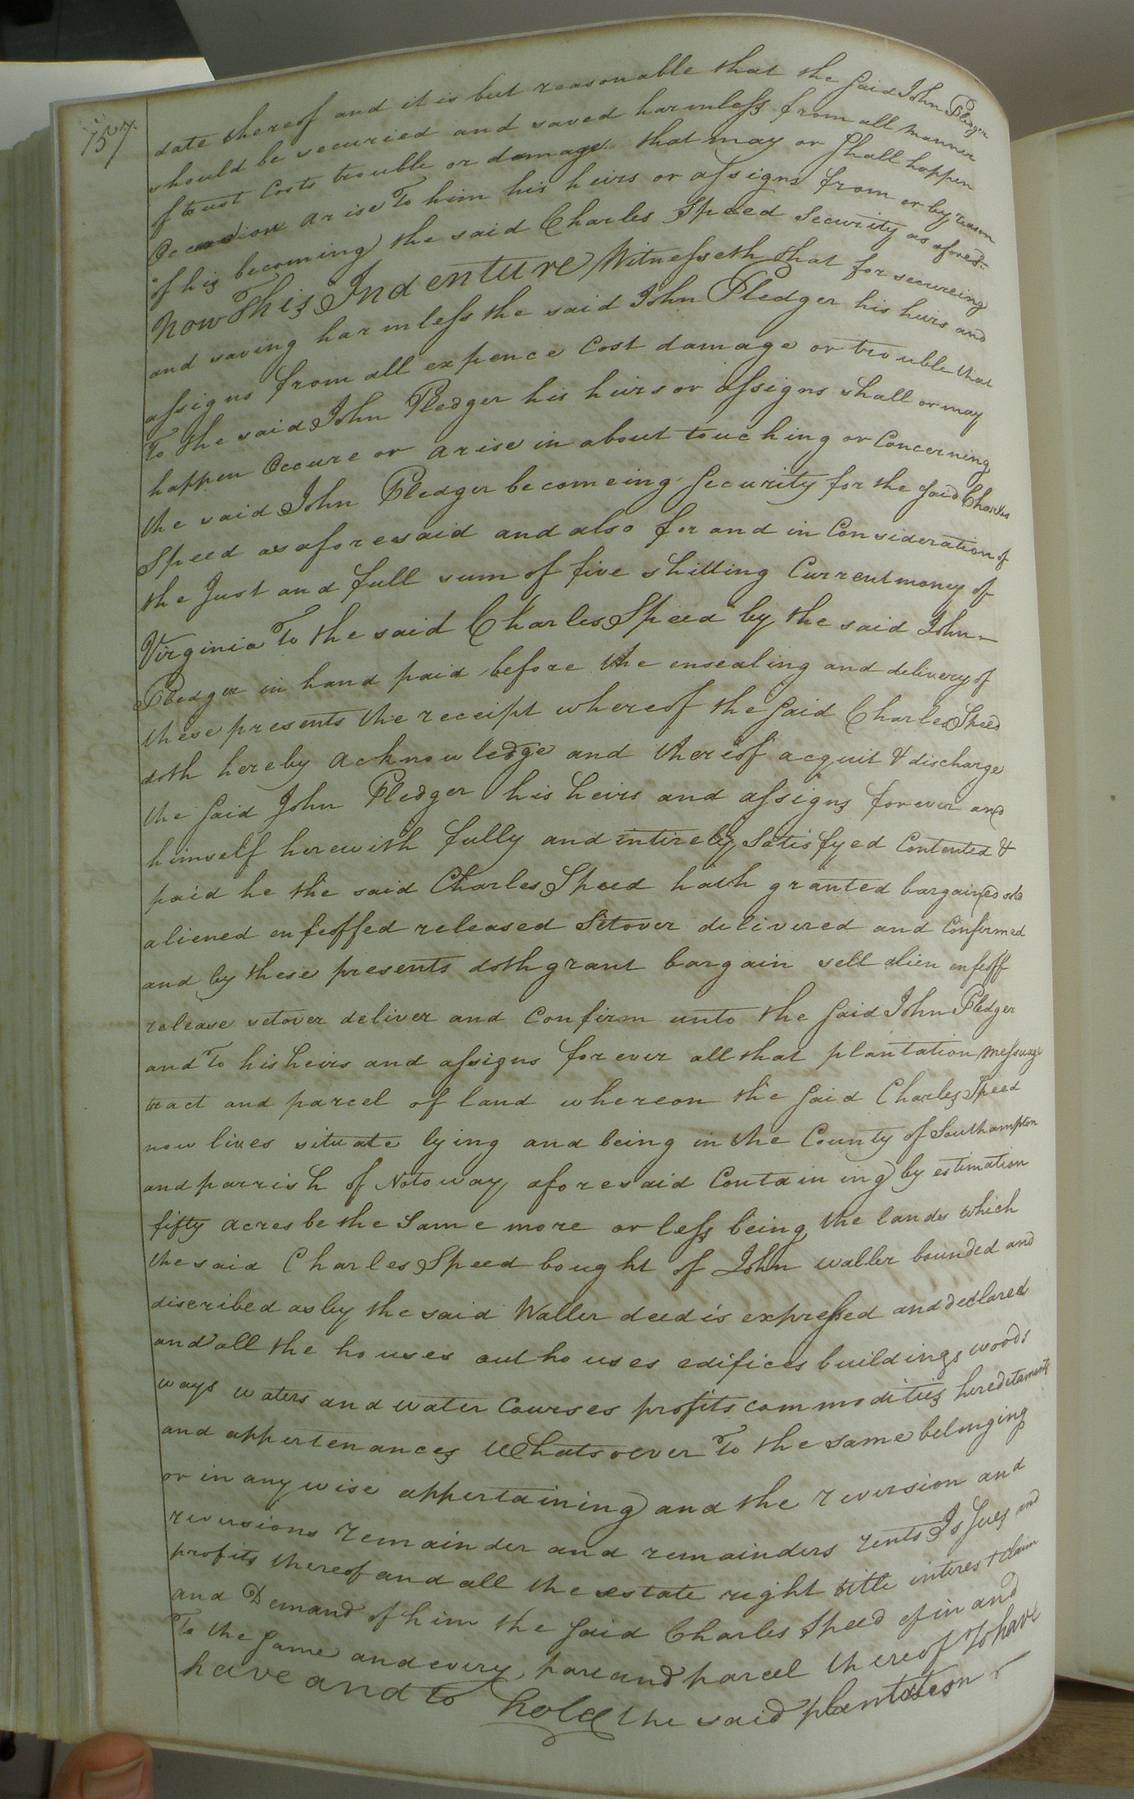 157
date thereof and it is but reasonable that the said John Pledger
should be securied and saved harmless from all manner
of Cost Costs trouble or damage that may or shall happen
Occasion arise To him his heirs or assigns from or by reason
of his becoming the said Charles Speed Security as afores:d
Now This Indenture Witnesseth that for secureing
and saving harmless the said John Pledger his heirs and
assigns from all expence Cost damage or trouble that
To the said John Pledger his heirs or assigns shall or may
happen Occure or arise in about touching or Concerning
the said John Pledger becomeing Security for the said Charles
Speed as aforesaid and also for and in Consideration of
the Just and full sum of five shilling Current money of
Virginia To the said Charles Speed by the said John
Pledger in hand paid before the ensealing and delivery of
these presents the receipt whereof the said Charles Speed
doth hereby acknowledge and thereof acquit & discharge
the said John Pledger his heirs and assigns forever and
himself herewith fully and intirely Satisfyed Contented &
paid he the said Charles Speed hath granted bargained sold
aliened enfeoffed released Setover delivered and Confirmed
and by these presents doth grant bargain sell alien enfeoff
release setover deliver and Confirm unto the said John Pledger
and To his heirs and assigns forever all that plantation messuage
tract and parcel of land whereon the said Charles Speed
now lives situate lying and being in the County of Southampton
and parrish of Notoway aforesaid Containing by estimation
fifty acres be the same more or less being the lands which
the said Charles Speed bought of John waller bounded and
discribed as by the said Waller deed is expressed and declared
and all the houses outhouses edifices buildings woods
ways waters and water Courses profits commodities hereditaments
and appertenances Whatsoever To the same belonging
or in any wise appertaining and the reversion and
reversions remainder and remainders rents Issues and
profits thereof and all the estate right title interest & claim
and Demand of him the said Charles Speed of in and
To the same and every part and parcel thereof To have
have and to hold the said plantation